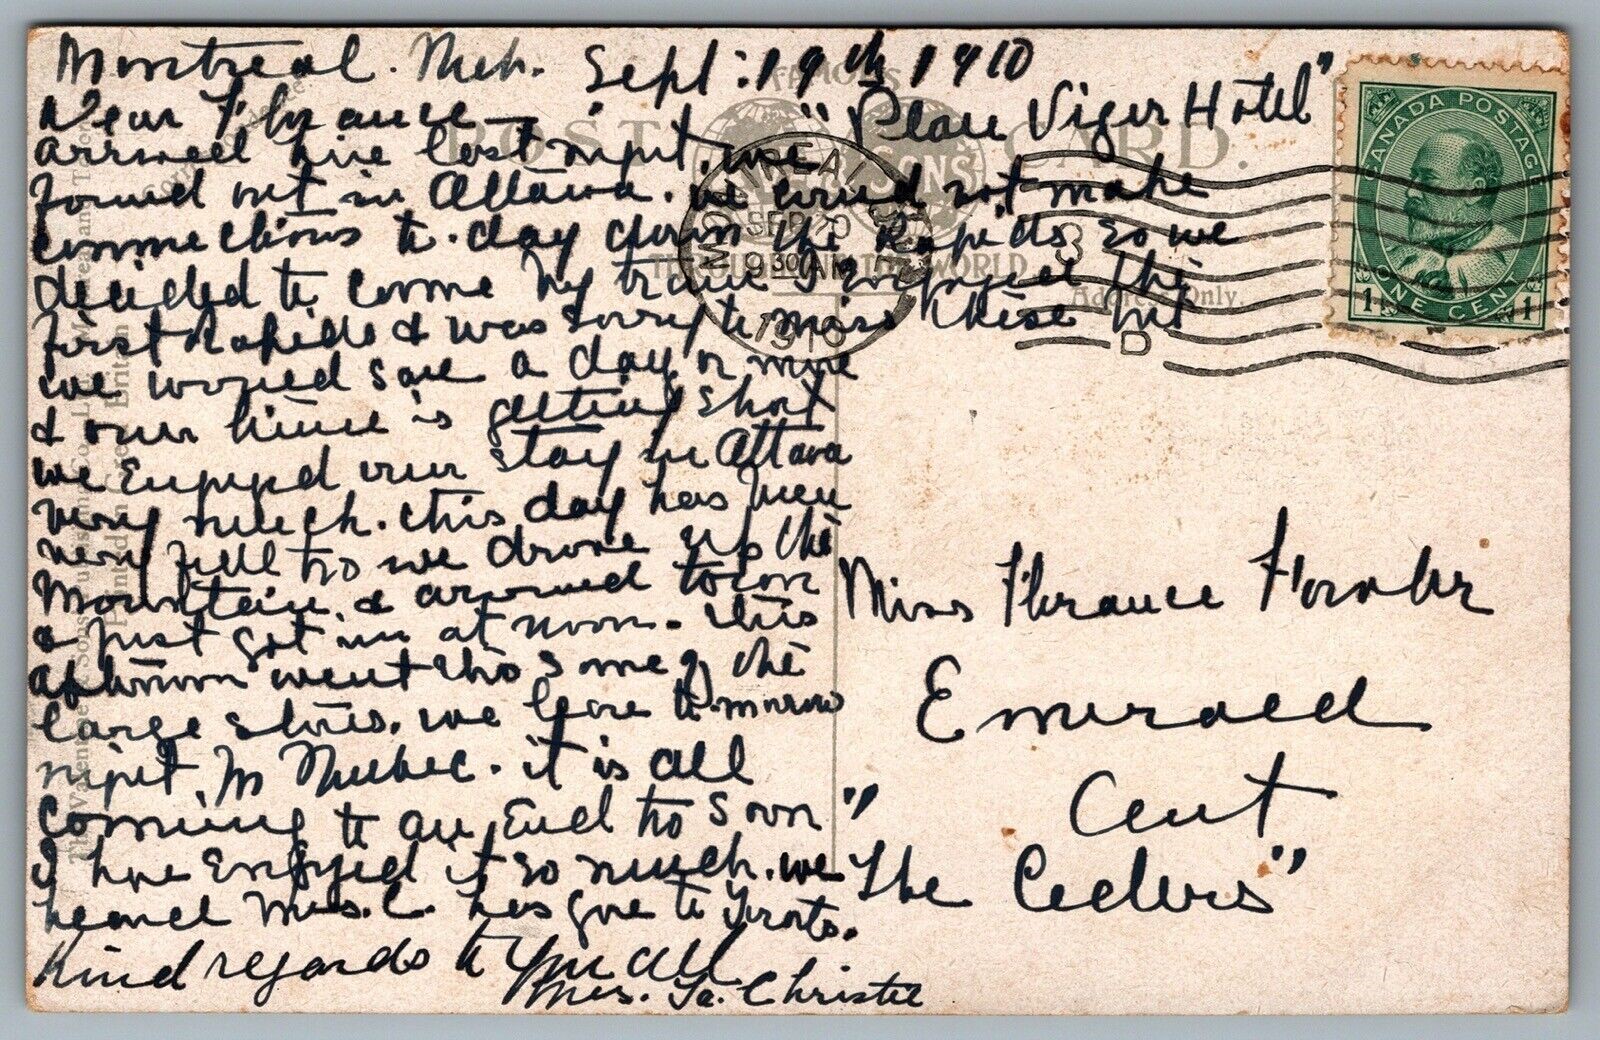 Montreal. Sept: 19th 1910
"Place Viger Hotel"
Dear Florance
arrived here last night, we
found out in Ottawa. we could not make
connections to-day down the Rapids so we
decided to come by train I enjoyed the
first Rapids & was sorry to miss these but
we would save a day or more
& our time is getting short
we enjoyed our stay in Ottawa
very much. this day has been
very full too we drove up the
Mountain & around town
& just got in at noon. this
afternoon went thro some of the
large stores. we leave to-morrow
night for Quebec. it is all
coming to an end too soon
I have enjoyed it so much. we
heard Mrs. C. has gone to
Kind regards to you all
Mrs. Christie
Miss Florance
Emerald
"The Cedars"
FAMOUS
POST CARD.
& SONS
THROUGHOUT THE WORLD
Address Only.
MONTREAL
SEP 20
9 30 AM
1910
D
CANADA POSTAGE
1 ONE CENT 1